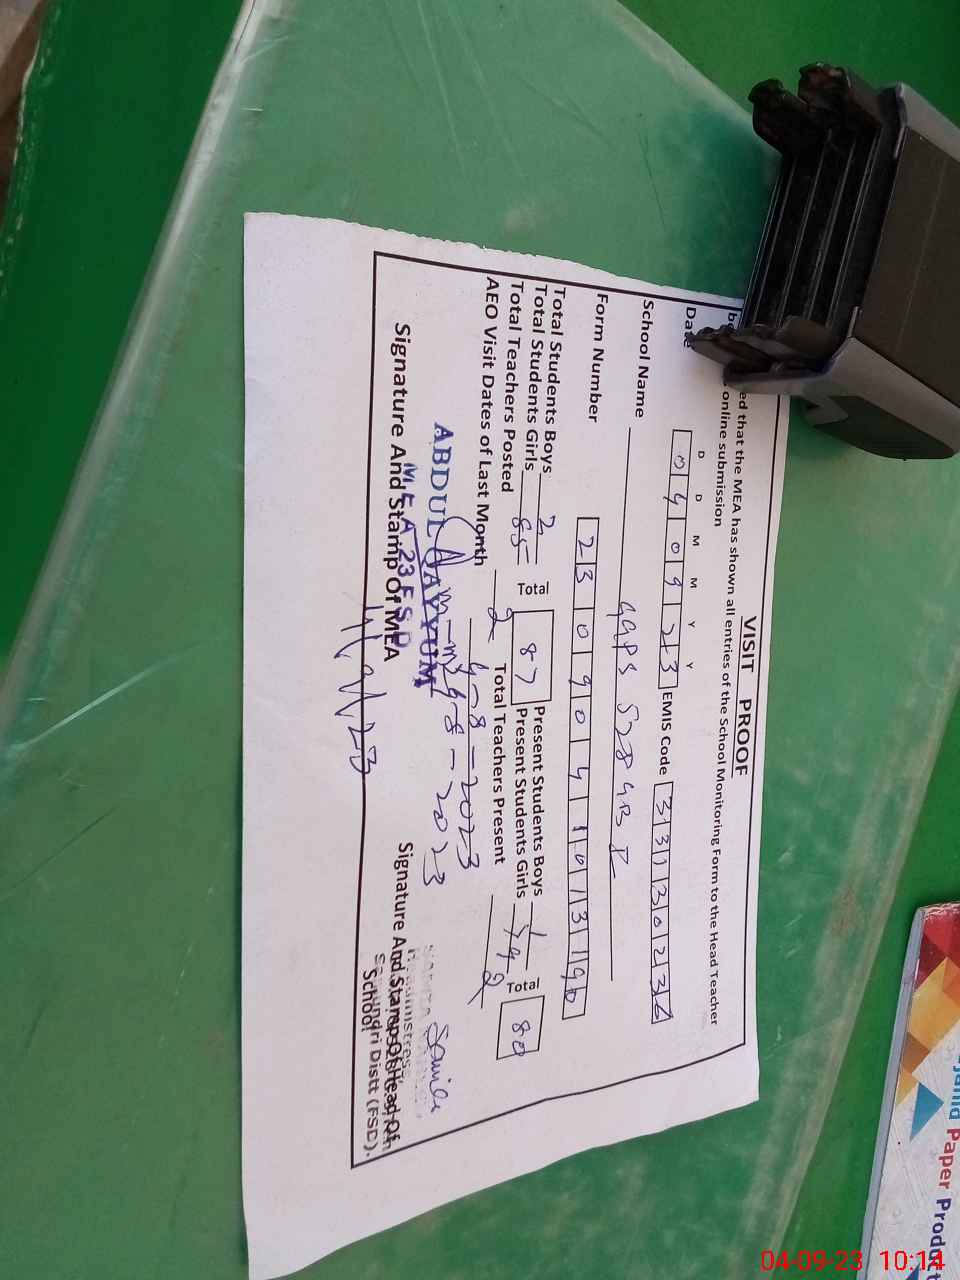 VISIT PROOF
ed that the MEA has shown all entries of the School Monitoring Form to the Head Teacher
online submission
D D M M Y Y
Date 040923 EMIS Code 33130236
School Name GGPS 528 GB I
Form Number
Total Students Boys 2 Total 87 Present Students Boys 1 Total 80
Total Students Girls 85 Present Students Girls 79
Total Teachers Posted 2 Total Teachers Present 2
AEO Visit Dates of Last Month 4-8-2023
ABDUL QAYYUM
MEA 23 FSD
Signature And Stamp Of MEA
4/9/23
Headmistress
Signature And Stamp Of Head Of
School
Distt (FSD).
Paper Product
04-09-23 10:14